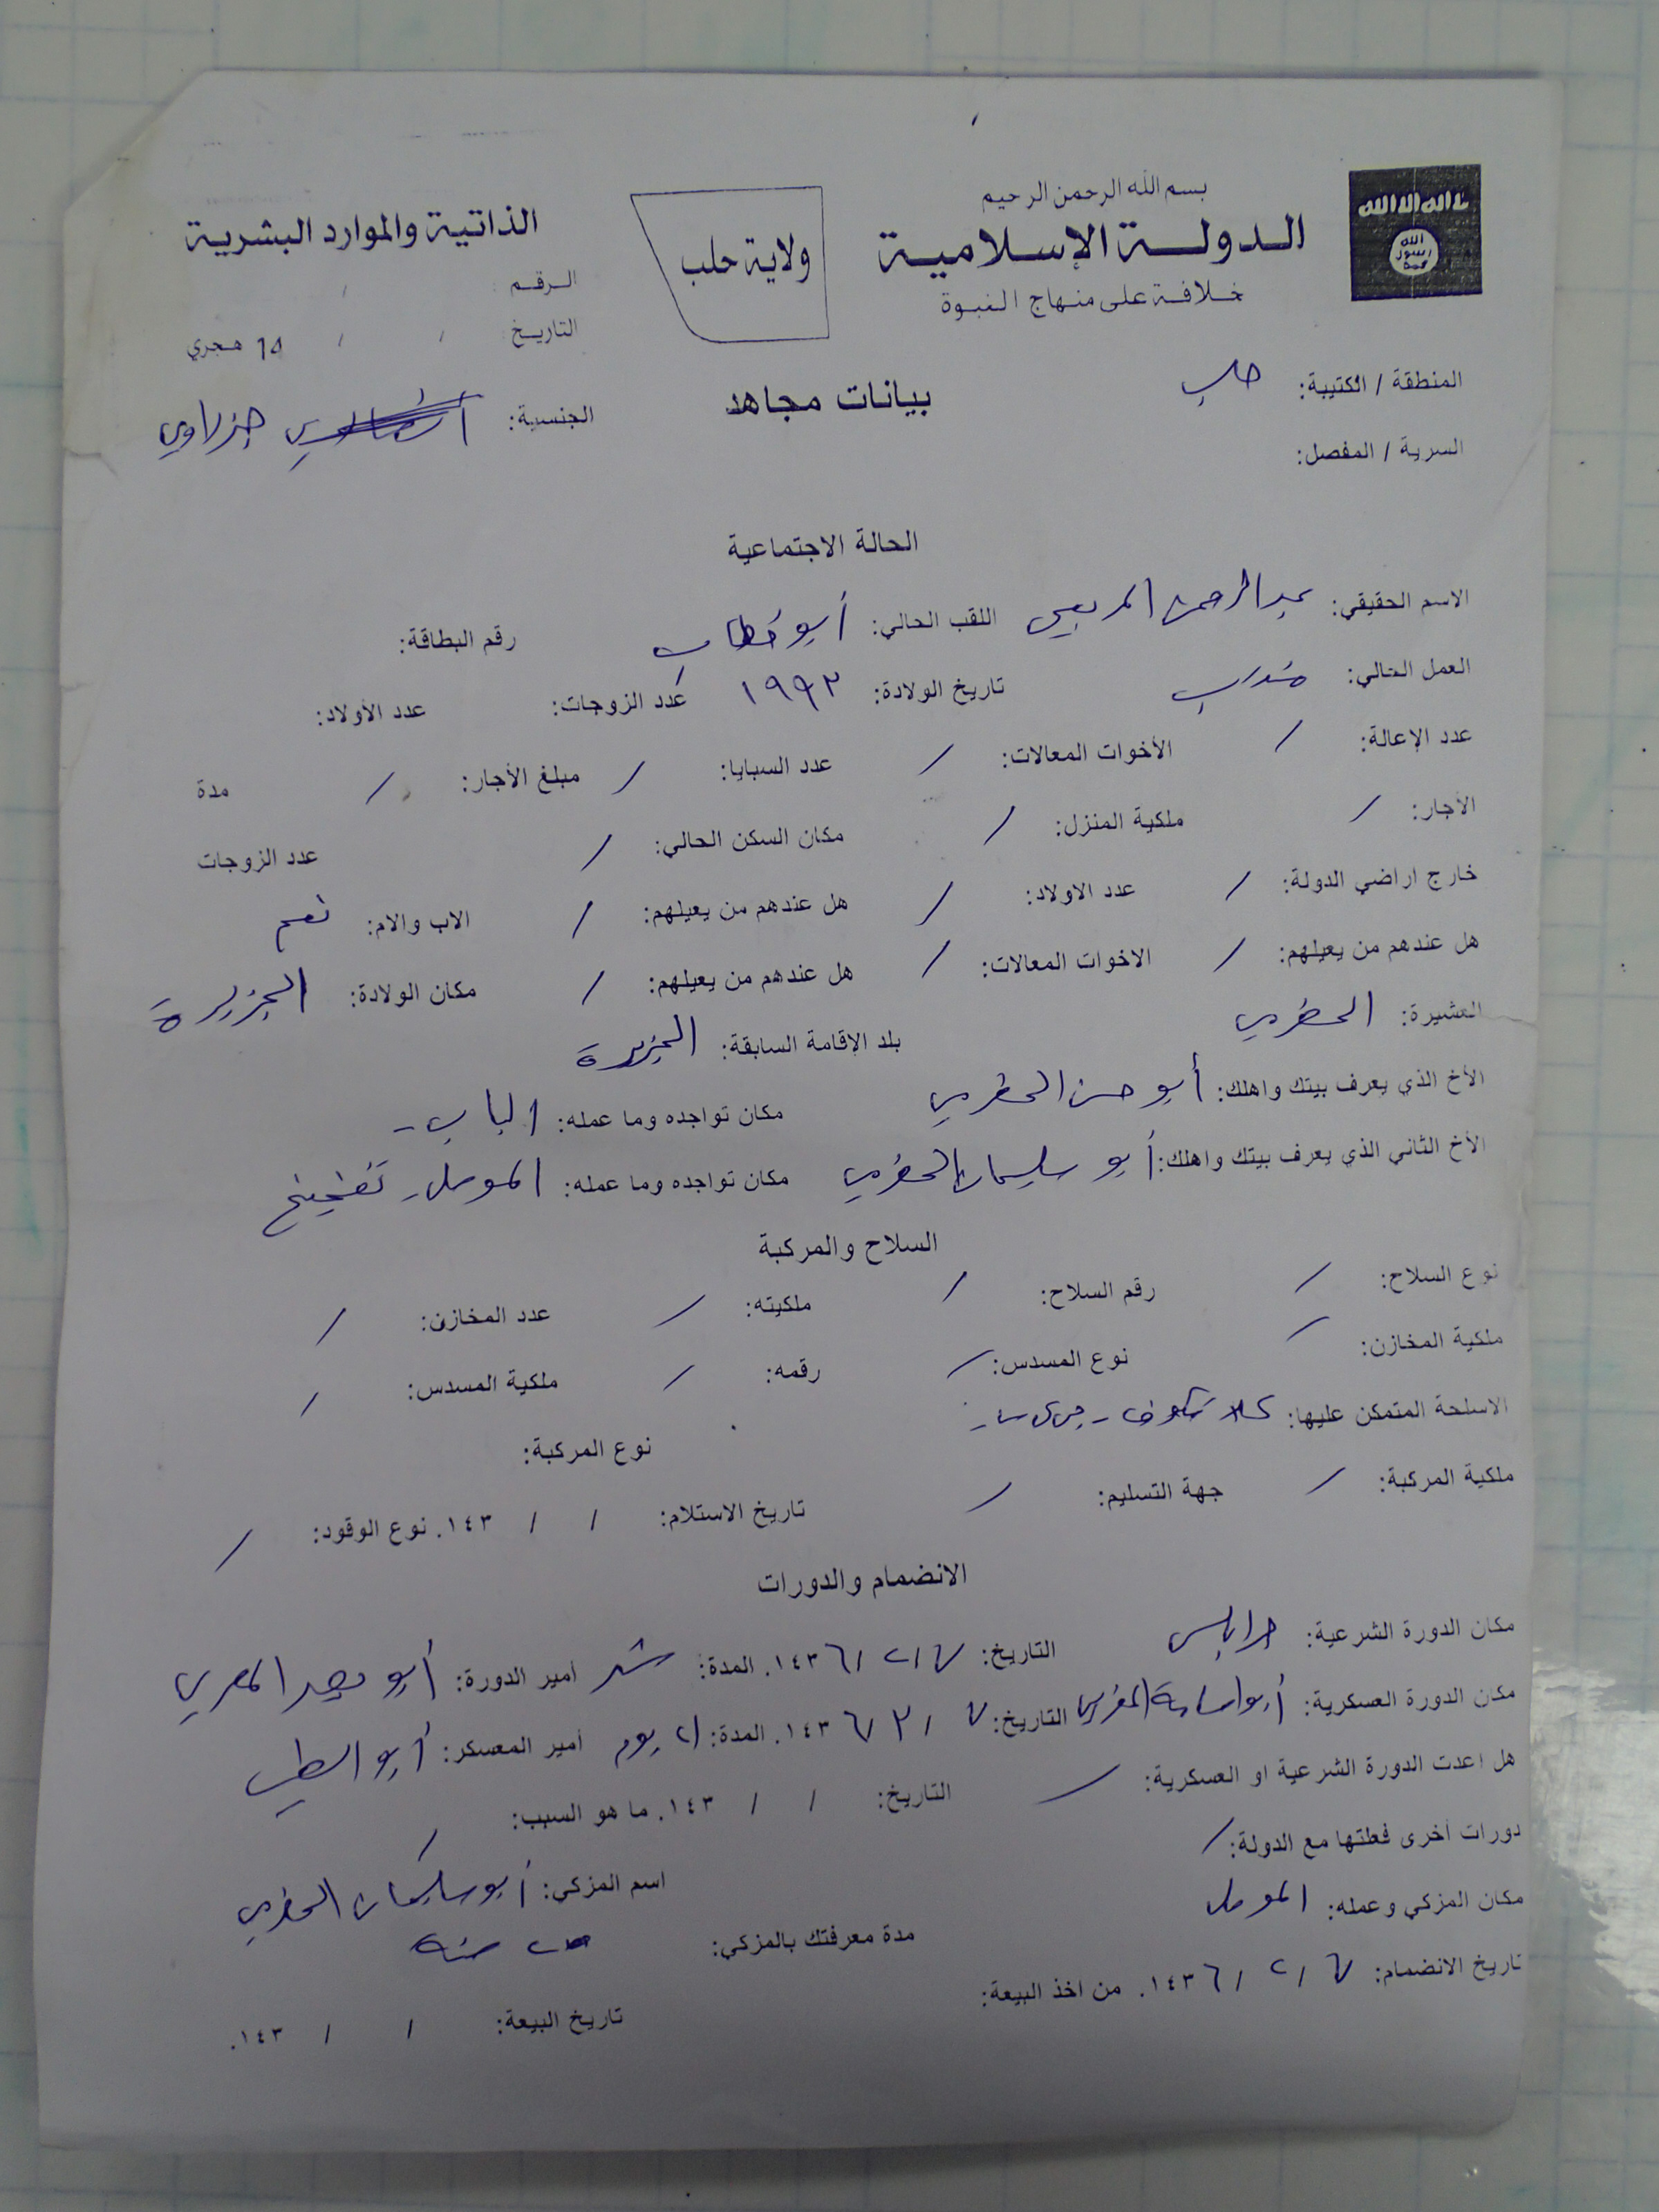 لا اله الا الله
الله
رسول
محمد
بسم الله الرحمن الرحيم
الدولة الإسلامية
خلافة على منهاج النبوة
ولاية حلب
الذاتية والموارد البشرية
الرقم :
التاريخ : / / 14 هجري
المنطقة / الكتيبة: حلب
بيانات مجاهد
الجنسية: جزراوي
السرية / المفصل:
الحالة الاجتماعية
الاسم الحقيقي: عبد الرحمن اللقب الحالي: أبو خطاب رقم البطاقة:
العمل الحالي: تاريخ الولادة: ١٩٩٢ عدد الزوجات: عدد الأولاد:
عدد الإعالة: / الأخوات المعالات: / عدد السبايا: / مبلغ الأجار: / مدة
الأجار: / ملكية المنزل: / مكان السكن الحالي: / عدد الزوجات
خارج اراضي الدولة: / عدد الاولاد: / هل عندهم من يعيلهم: / الاب والام: نعم
هل عندهم من يعيلهم: / الاخوات المعالات: / هل عندهم من يعيلهم: / مكان الولادة: الجزيرة
العشيرة: الحضرمي بلد الإقامة السابقة: الجزيرة
الأخ الذي يعرف بيتك واهلك: أبو حسن الحضرمي مكان تواجده وما عمله: الباب -
الأخ الثاني الذي يعرف بيتك واهلك: أبو سليمان الحضرمي مكان تواجده وما عمله: الموصل - تفخيخ
السلاح والمركبة
نوع السلاح: / رقم السلاح: / ملكيته: / عدد المخازن: /
ملكية المخازن: / نوع المسدس: / رقمه: / ملكية المسدس: /
الاسلحة المتمكن عليها: كلاشنكوف - نوع المركبة:
ملكية المركبة: / جهة التسليم: / تاريخ الاستلام: / / ١٤٣. نوع الوقود: /
الانضمام والدورات
مكان الدورة الشرعية: جرابلس التاريخ: ٧ / ٢ / ١٤٣٦. المدة: شهر أمير الدورة: أبو المصري
مكان الدورة العسكرية: أبو اسامة المغربي التاريخ: ٧ / ٣ / ١٤٣٦. المدة: يوم أمير المعسكر: أبو
هل اعدت الدورة الشرعية او العسكرية: / التاريخ: / / ١٤٣. ما هو السبب: /
دورات أخرى فعلتها مع الدولة: / اسم المزكي: أبو سليمان الحضرمي
مكان المزكي وعمله: الموصل مدة معرفتك بالمزكي: سنة
تاريخ الانضمام: ٧ / ٢ / ١٤٣٦. من اخذ البيعة: تاريخ البيعة: / / ١٤٣.